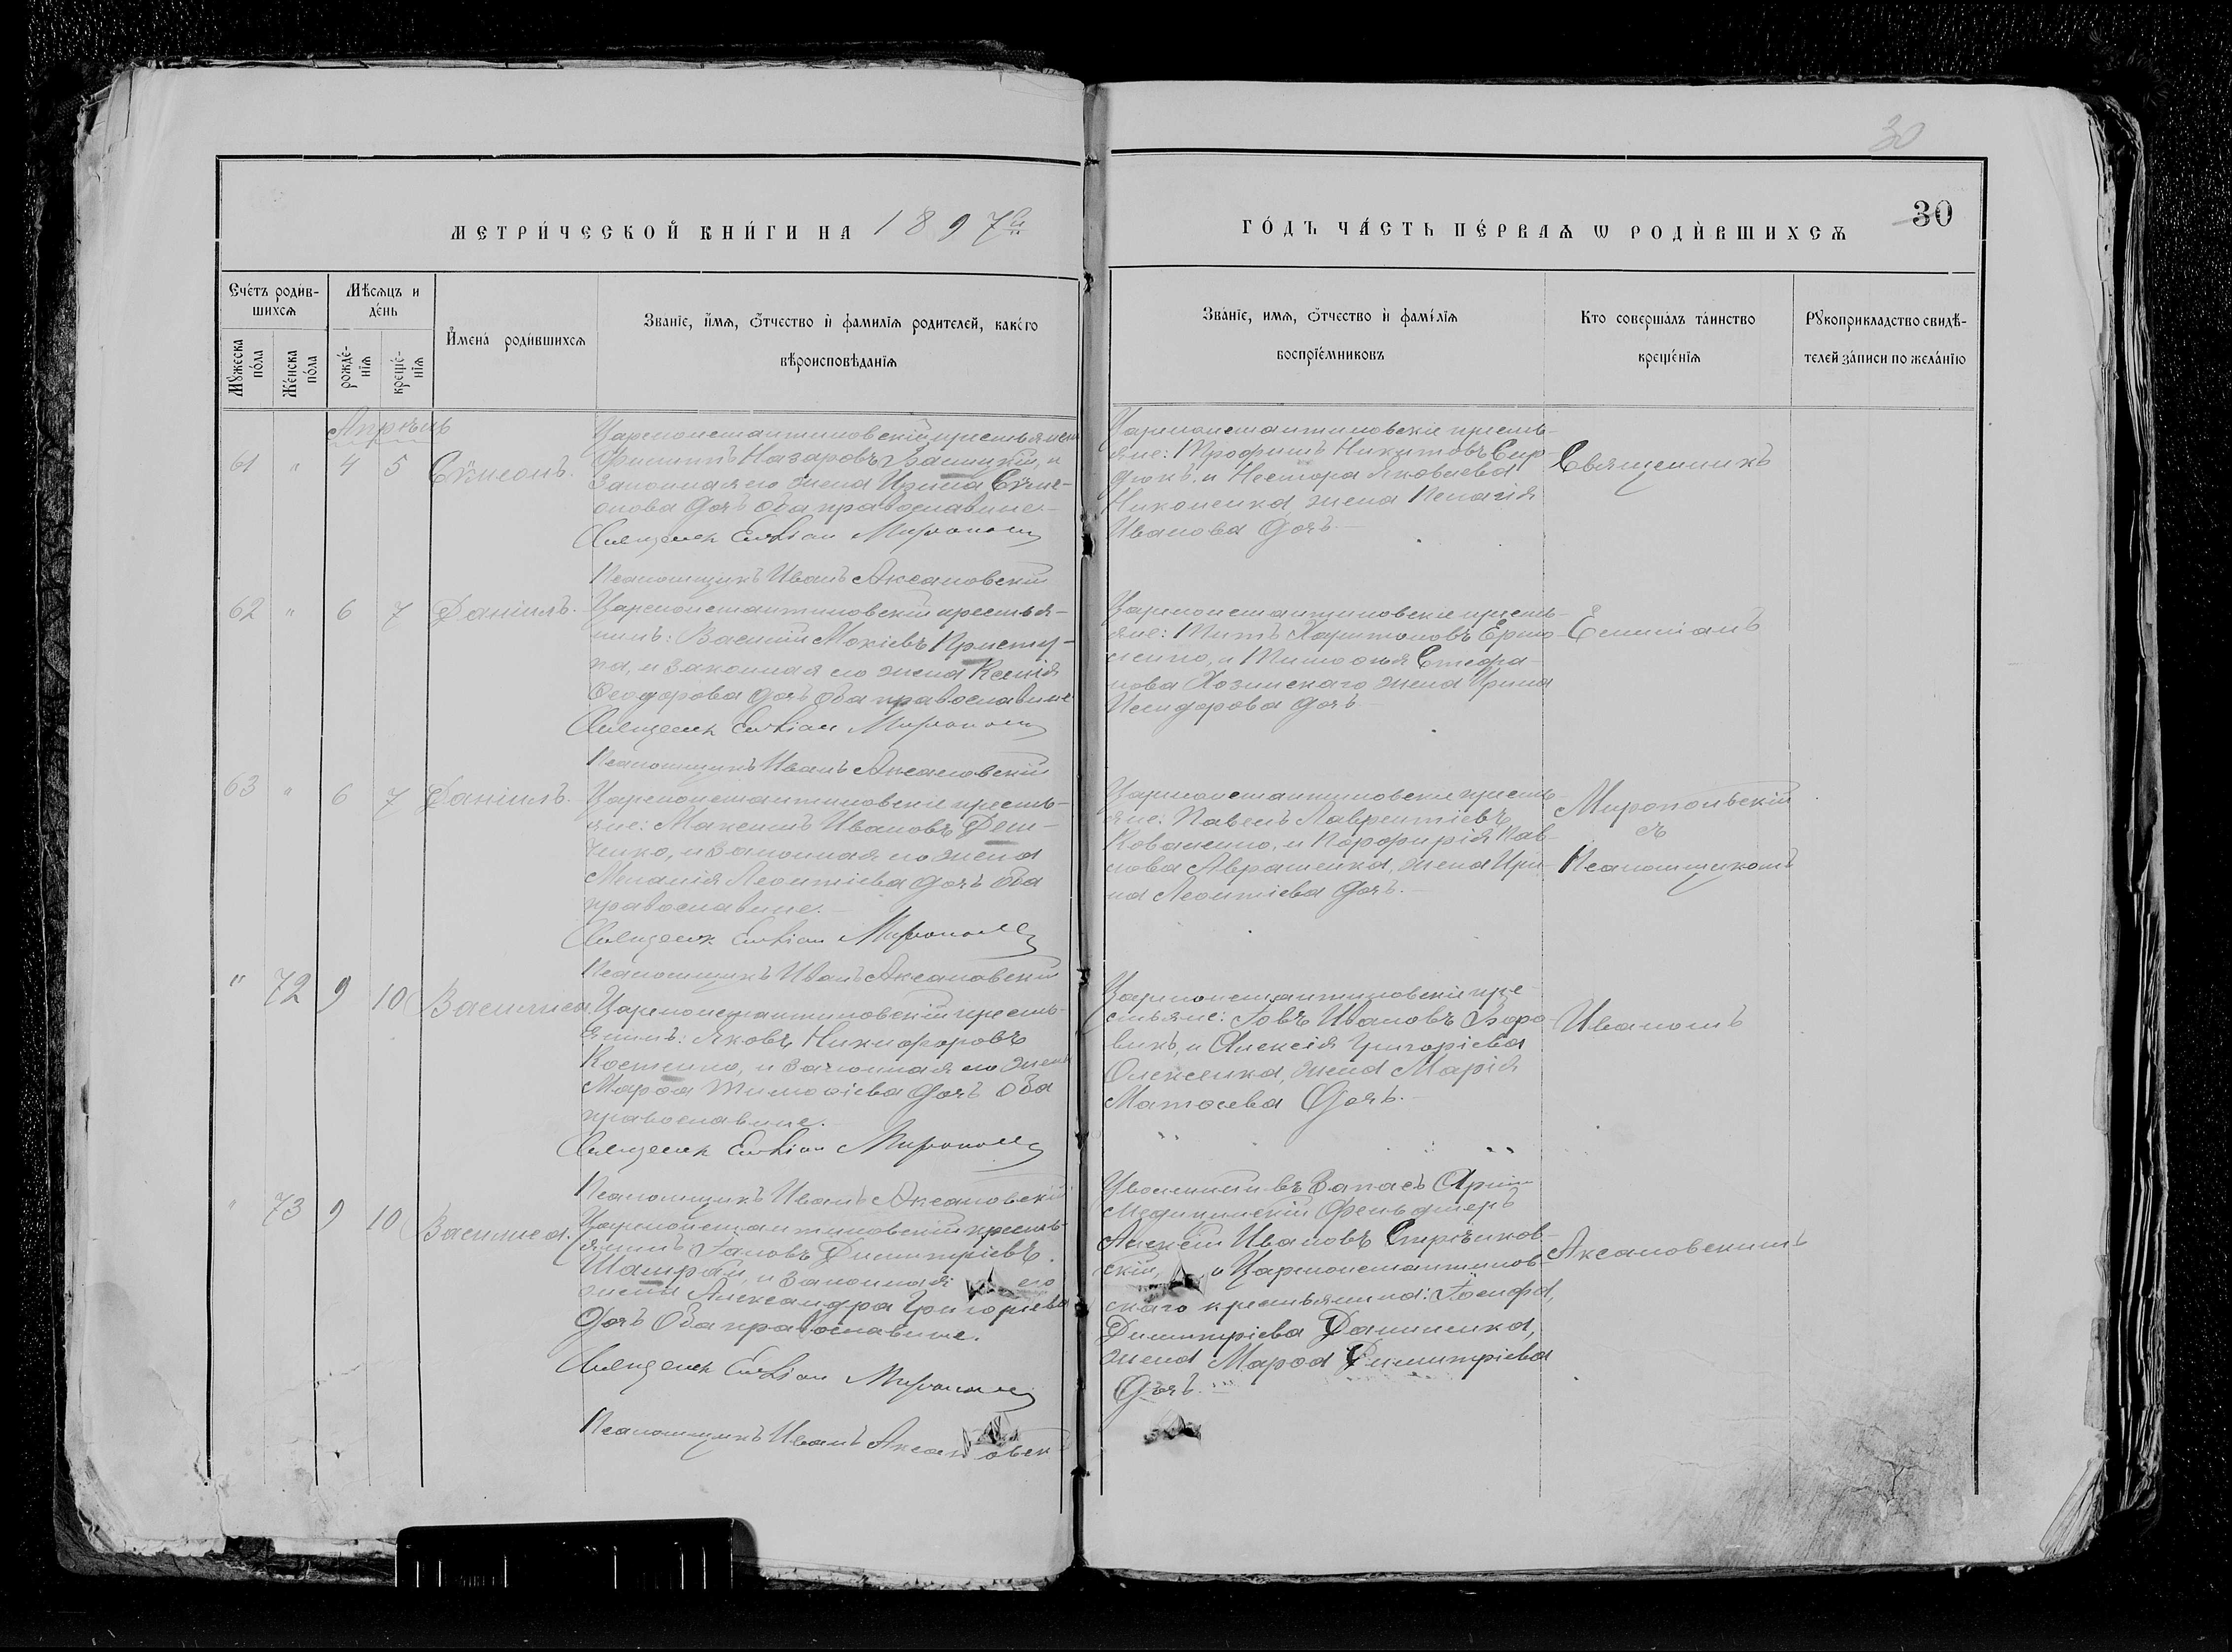 30
МЕТРИ́ЧЕСКОЙ КНИ́ГИ НА 1897й
ГО́ДЪ ЧА́СТЬ ПЕ́РВАѦ Ѡ РОДИ́ВШИХСѦ
30
Сче́тъ роди́в-
шихсѧ
Мѣ́сѧцъ и
де́нь
Мꙋ́жеска
по́ла
Же́нска
по́ла
рожде́-
нїѧ
креще́-
нїѧ
И҆мена̀ роди́вшихсѧ
Зва́нїе, и҆́мѧ, ѻ҆́тчество и҆ фами́лїѧ роди́телей, како́го
вѣроисповѣ́данїѧ
Зва́нїе, имѧ, ѻ҆́тчество и҆ фамі́лїѧ
воспрїе́мниковъ
Кто соверша́лъ та́инство
креще́нїѧ
Рꙋкоприкладство свидѣ́-
телей за́писи по жела́нїю
Апрѣль
61 " 4 5 Сѵмеонъ.
Цареконстантиновскій крестьянинъ
Филиппъ Назаровъ, и
законная его жена Ирина Сѵме-
онова дочь оба православные.
Священник Емилиан Миропольский
Псаломщикъ Иванъ Аксановскій
Цареконстантиновскіе кресть-
яне: Трофимъ Никитовъ Сер-
дюкъ, и Нестора Яковлева
Никоненка, жена Пелагія
Иванова дочь.
Священникъ
62 " 6 7 Даніилъ.
Цареконстантиновскій крестья-
нинъ: Василій Мокіевъ Присту-
па, и законная его жена Ксенія
Ѳеодорова дочь оба православные
Священник Емилиан Миропольский
Псаломщикъ Иванъ Аксановскій
Цареконстантиновскіе кресть-
яне: Титъ Харитоновъ Ермо-
ленко, и Тимоѳея Стефа-
нова Хозинскаго жена Ирина
Исидорова дочь
Емиліанъ
63 " 6 7 Даніилъ.
Цареконстантиновскіе кресть-
яне: Максимъ Ивановъ Дем-
ченко, и законная его жена
Меланія Леонтіева дочь оба
православные.
Священник Емилиан Миропольский
Псаломщикъ Иванъ Аксановскій
Цареконстантиновскіе кресть-
яне: Павелъ Лаврентіевъ
Коваленко, и Порфирія Пав-
лова Аврашенка, жена Ири-
на Леонтіева дочь.
Миропольскій
съ
Псаломщикомъ
" 72 9 10 Василиса
Цареконстантиновскій кресть-
янинъ: Яковъ Никифоровъ
Костенко, и законная его жена
Марѳа Тимоѳіева дочь оба
православные.
Священник Емилиан Миропольский
Псаломщикъ Иванъ Аксановскій
Цареконстантиновскіе кре-
стьяне: Іовъ Ивановъ Боро-
викъ, и Алексія Григоріева
Олексенка, жена Марія
Матѳеева дочь.
Иваномъ
" 73 9 10 Василиса.
Цареконстантиновскій кресть-
янинъ: Іаковъ Димитріевъ
и законная его
жена Александра Григоріева
дочь оба православные.
Священник Емилиан Миропольский
Псаломщикъ Иванъ Аксановск
Уволенный въ запасъ Арміи
Медицинскій Фельдшеръ
Алексій Ивановъ
и Цареконстантинов-
скаго крестьянина: Іосифа
Димитріева Даниленка,
жена Марѳа Димитріева
дочь.
Аксановскимъ